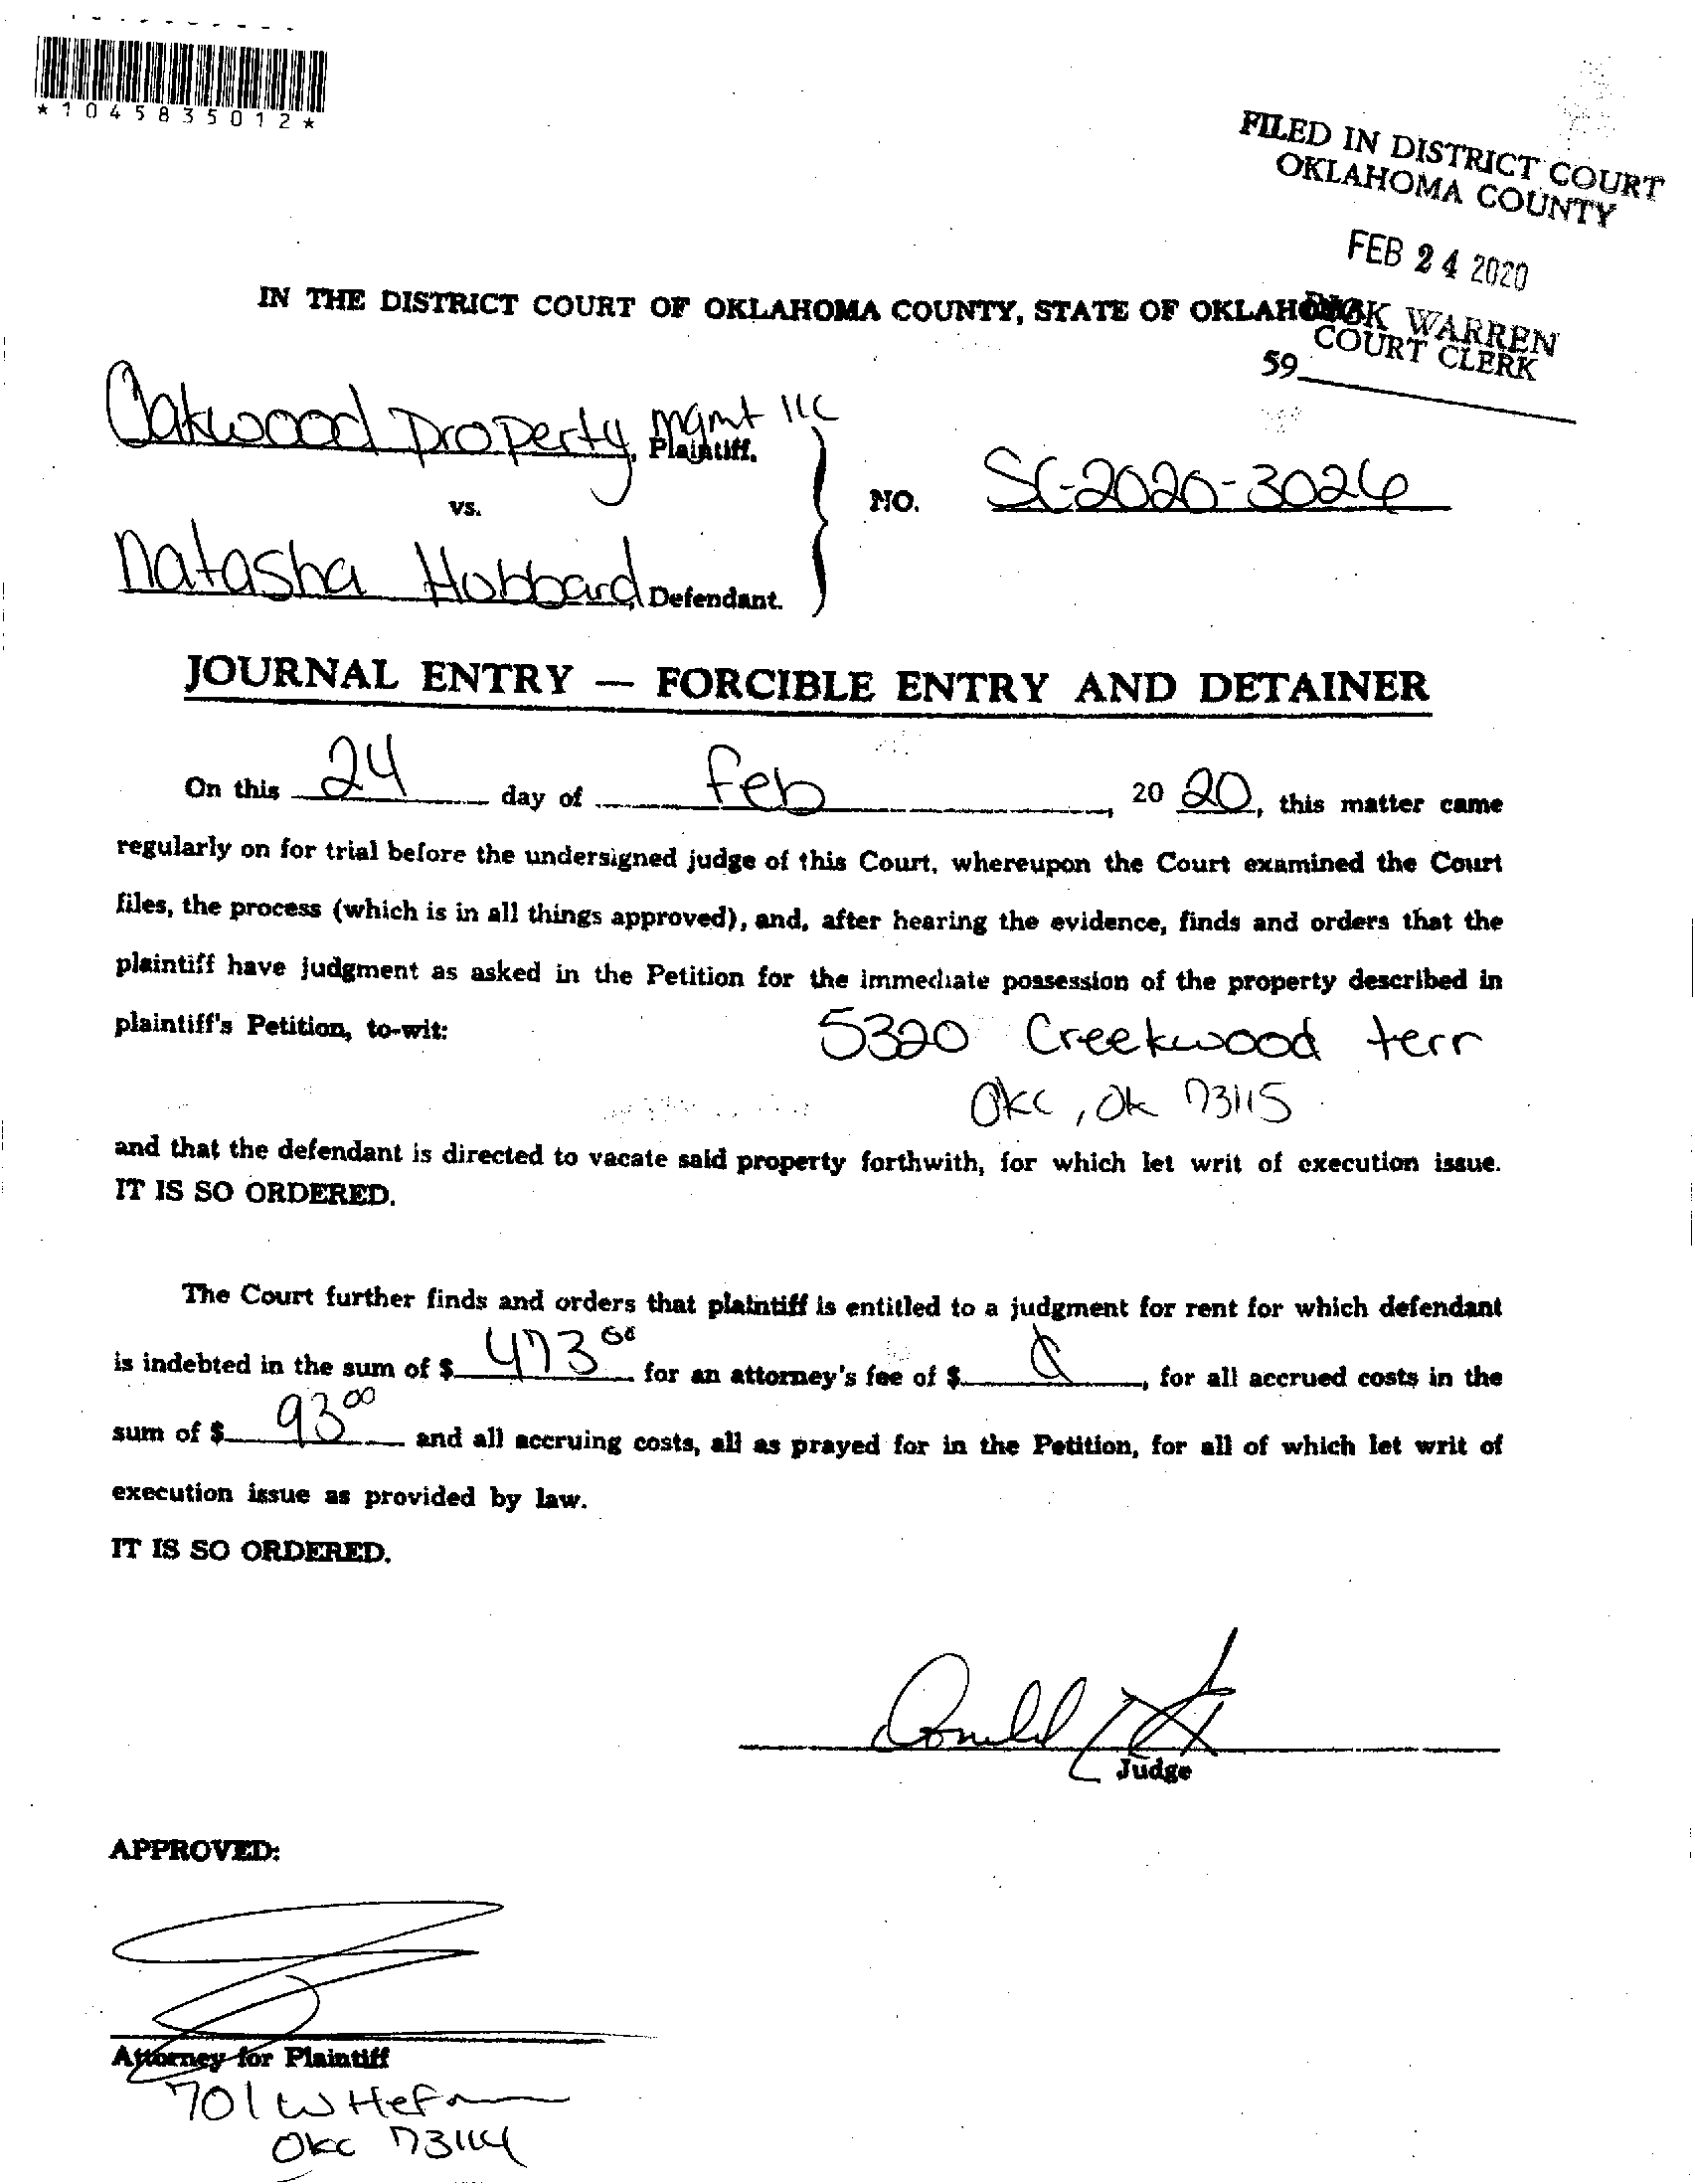 *1045835012*
FILED IN DISTRICT COURT
OKLAHOMA COUNTY
FEB 24 2020
IN THE DISTRICT COURT OF OKLAHOMA COUNTY, STATE OF OKLAHOMA
RICK WARREN
COURT CLERK
59
Oakwood property mgmt llc
Plaintiff,
vs.
NO. SC-2020-3026
Natasha Hubbard Defendant.
JOURNAL ENTRY — FORCIBLE ENTRY AND DETAINER
On this 24 day of Feb, 20 20, this matter came
regularly on for trial before the undersigned judge of this Court, whereupon the Court examined the Court
files, the process (which is in all things approved), and, after hearing the evidence, finds and orders that the
plaintiff have judgment as asked in the Petition for the immediate possession of the property described in
plaintiff's Petition, to-wit: 5320 Creekwood terr
Okc, Ok 73115
and that the defendant is directed to vacate said property forthwith, for which let writ of execution issue.
IT IS SO ORDERED.
The Court further finds and orders that plaintiff is entitled to a judgment for rent for which defendant
is indebted in the sum of $ 473 00 for an attorney's fee of $ , for all accrued costs in the
sum of $ 93 00 and all accruing costs, all as prayed for in the Petition, for all of which let writ of
execution issue as provided by law.
IT IS SO ORDERED.
Judge
APPROVED:
Attorney for Plaintiff
701 W Hefner
Okc 73114